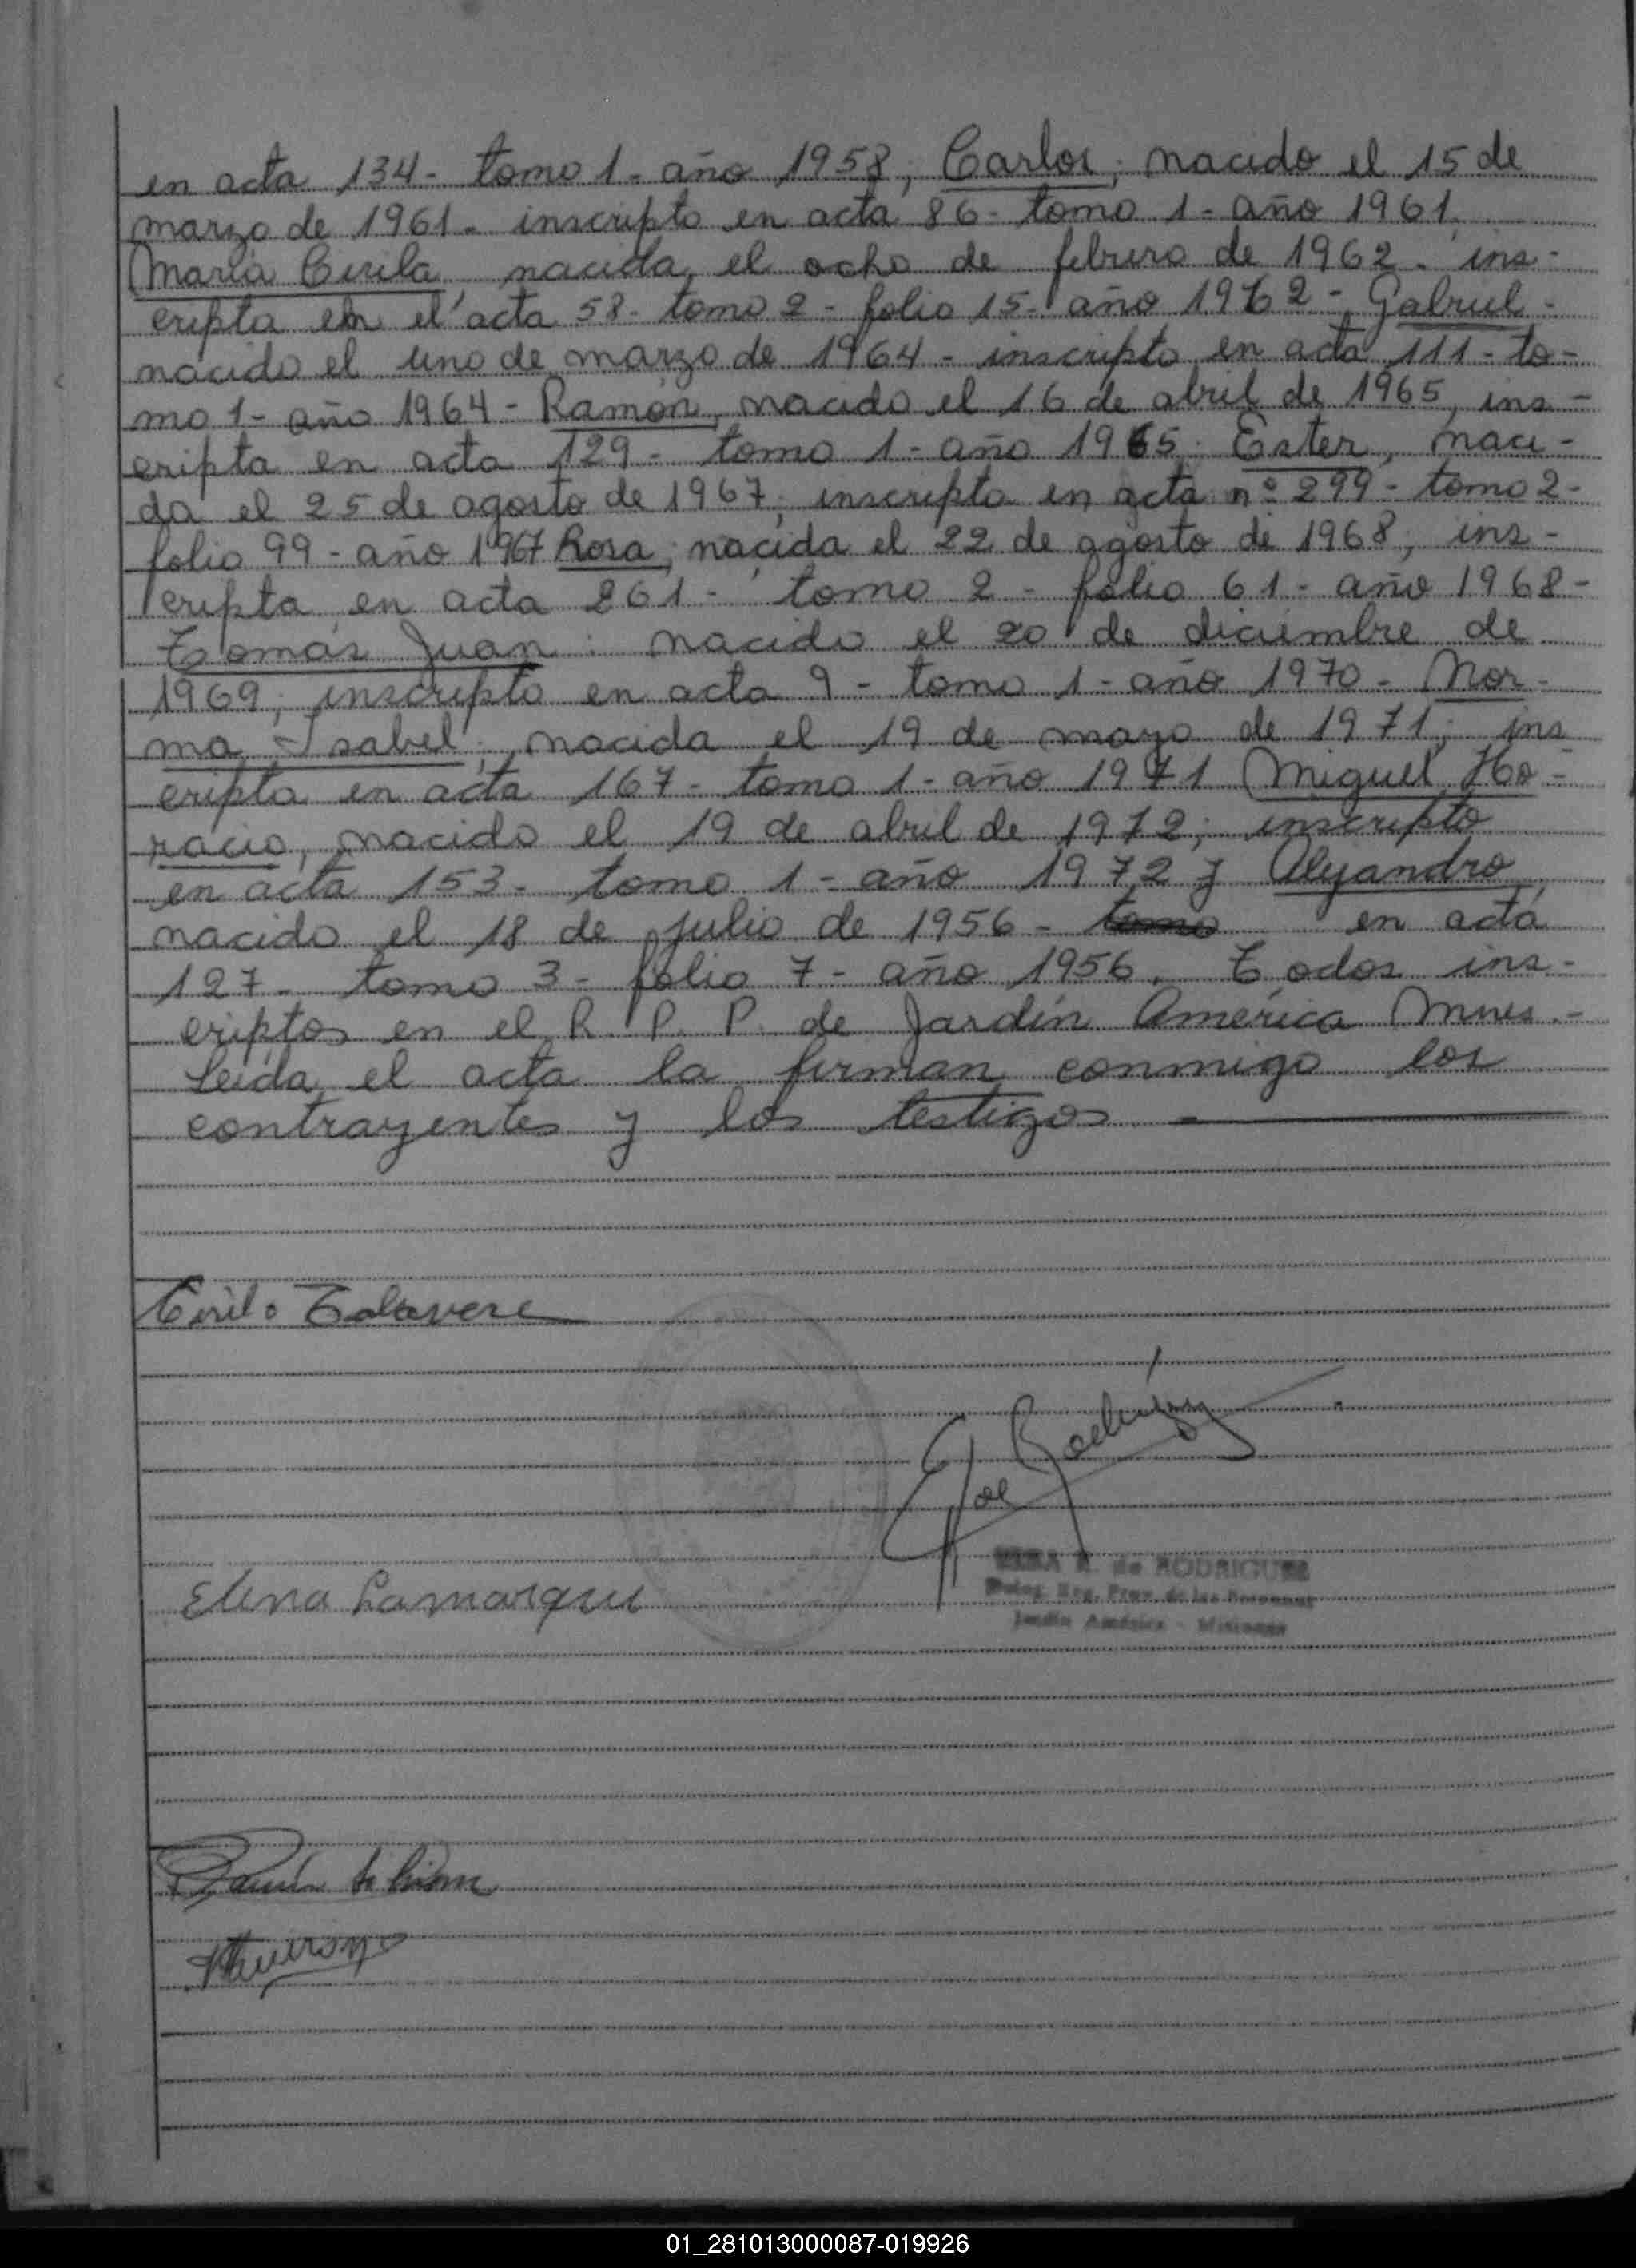 en acta 134- tomo 1- año 1958; Carlos; nacido el 15 de
marzo de 1961- inscripto en acta 86- tomo 1- año 1961.
María Cirila nacida, el ocho de febrero de 1962. ins-
cripta en el acta 58- tomo 2- folio 15- año 1962- Gabriel-
nacido el uno de marzo de 1964- inscripto en acta 111- to-
mo 1- año 1964- Ramón, nacido el 16 de abril de 1965, ins-
cripta en acta 129- tomo 1- año 1965. Ester, naci-
da el 25 de agosto de 1967; inscripta en acta nº 299- tomo 2-
folio 99- año 1967 Rosa; nacida el 22 de agosto de 1968; ins-
cripta en acta 261- tomo 2- folio 61- año 1968-
Tomás Juan: nacido el 20 de diciembre de
1969; inscripto en acta 9- tomo 1- año 1970- Nor-
ma Isabel; nacida el 19 de mayo de 1971; ins
cripta en acta 167- tomo 1- año 1971 Miguel Ho-
racio, nacido el 19 de abril de 1972; inscripto
en acta 153- tomo 1- año 1972 y Alejandro,
nacido el 18 de julio de 1956- tomo en acta
127- tomo 3- folio 7- año 1956. Todos ins-
criptos en el R. P. P. de Jardín América Mnes.-
Leída el acta la firman conmigo los
contrayentes y los testigos.-
Cirilo Talavera
Rodríguez
de RODRIGUEZ
Deleg. Reg. Prov. de las Personas
Elena Lamarque
Jardín América - Misiones
01_281013000087-019926